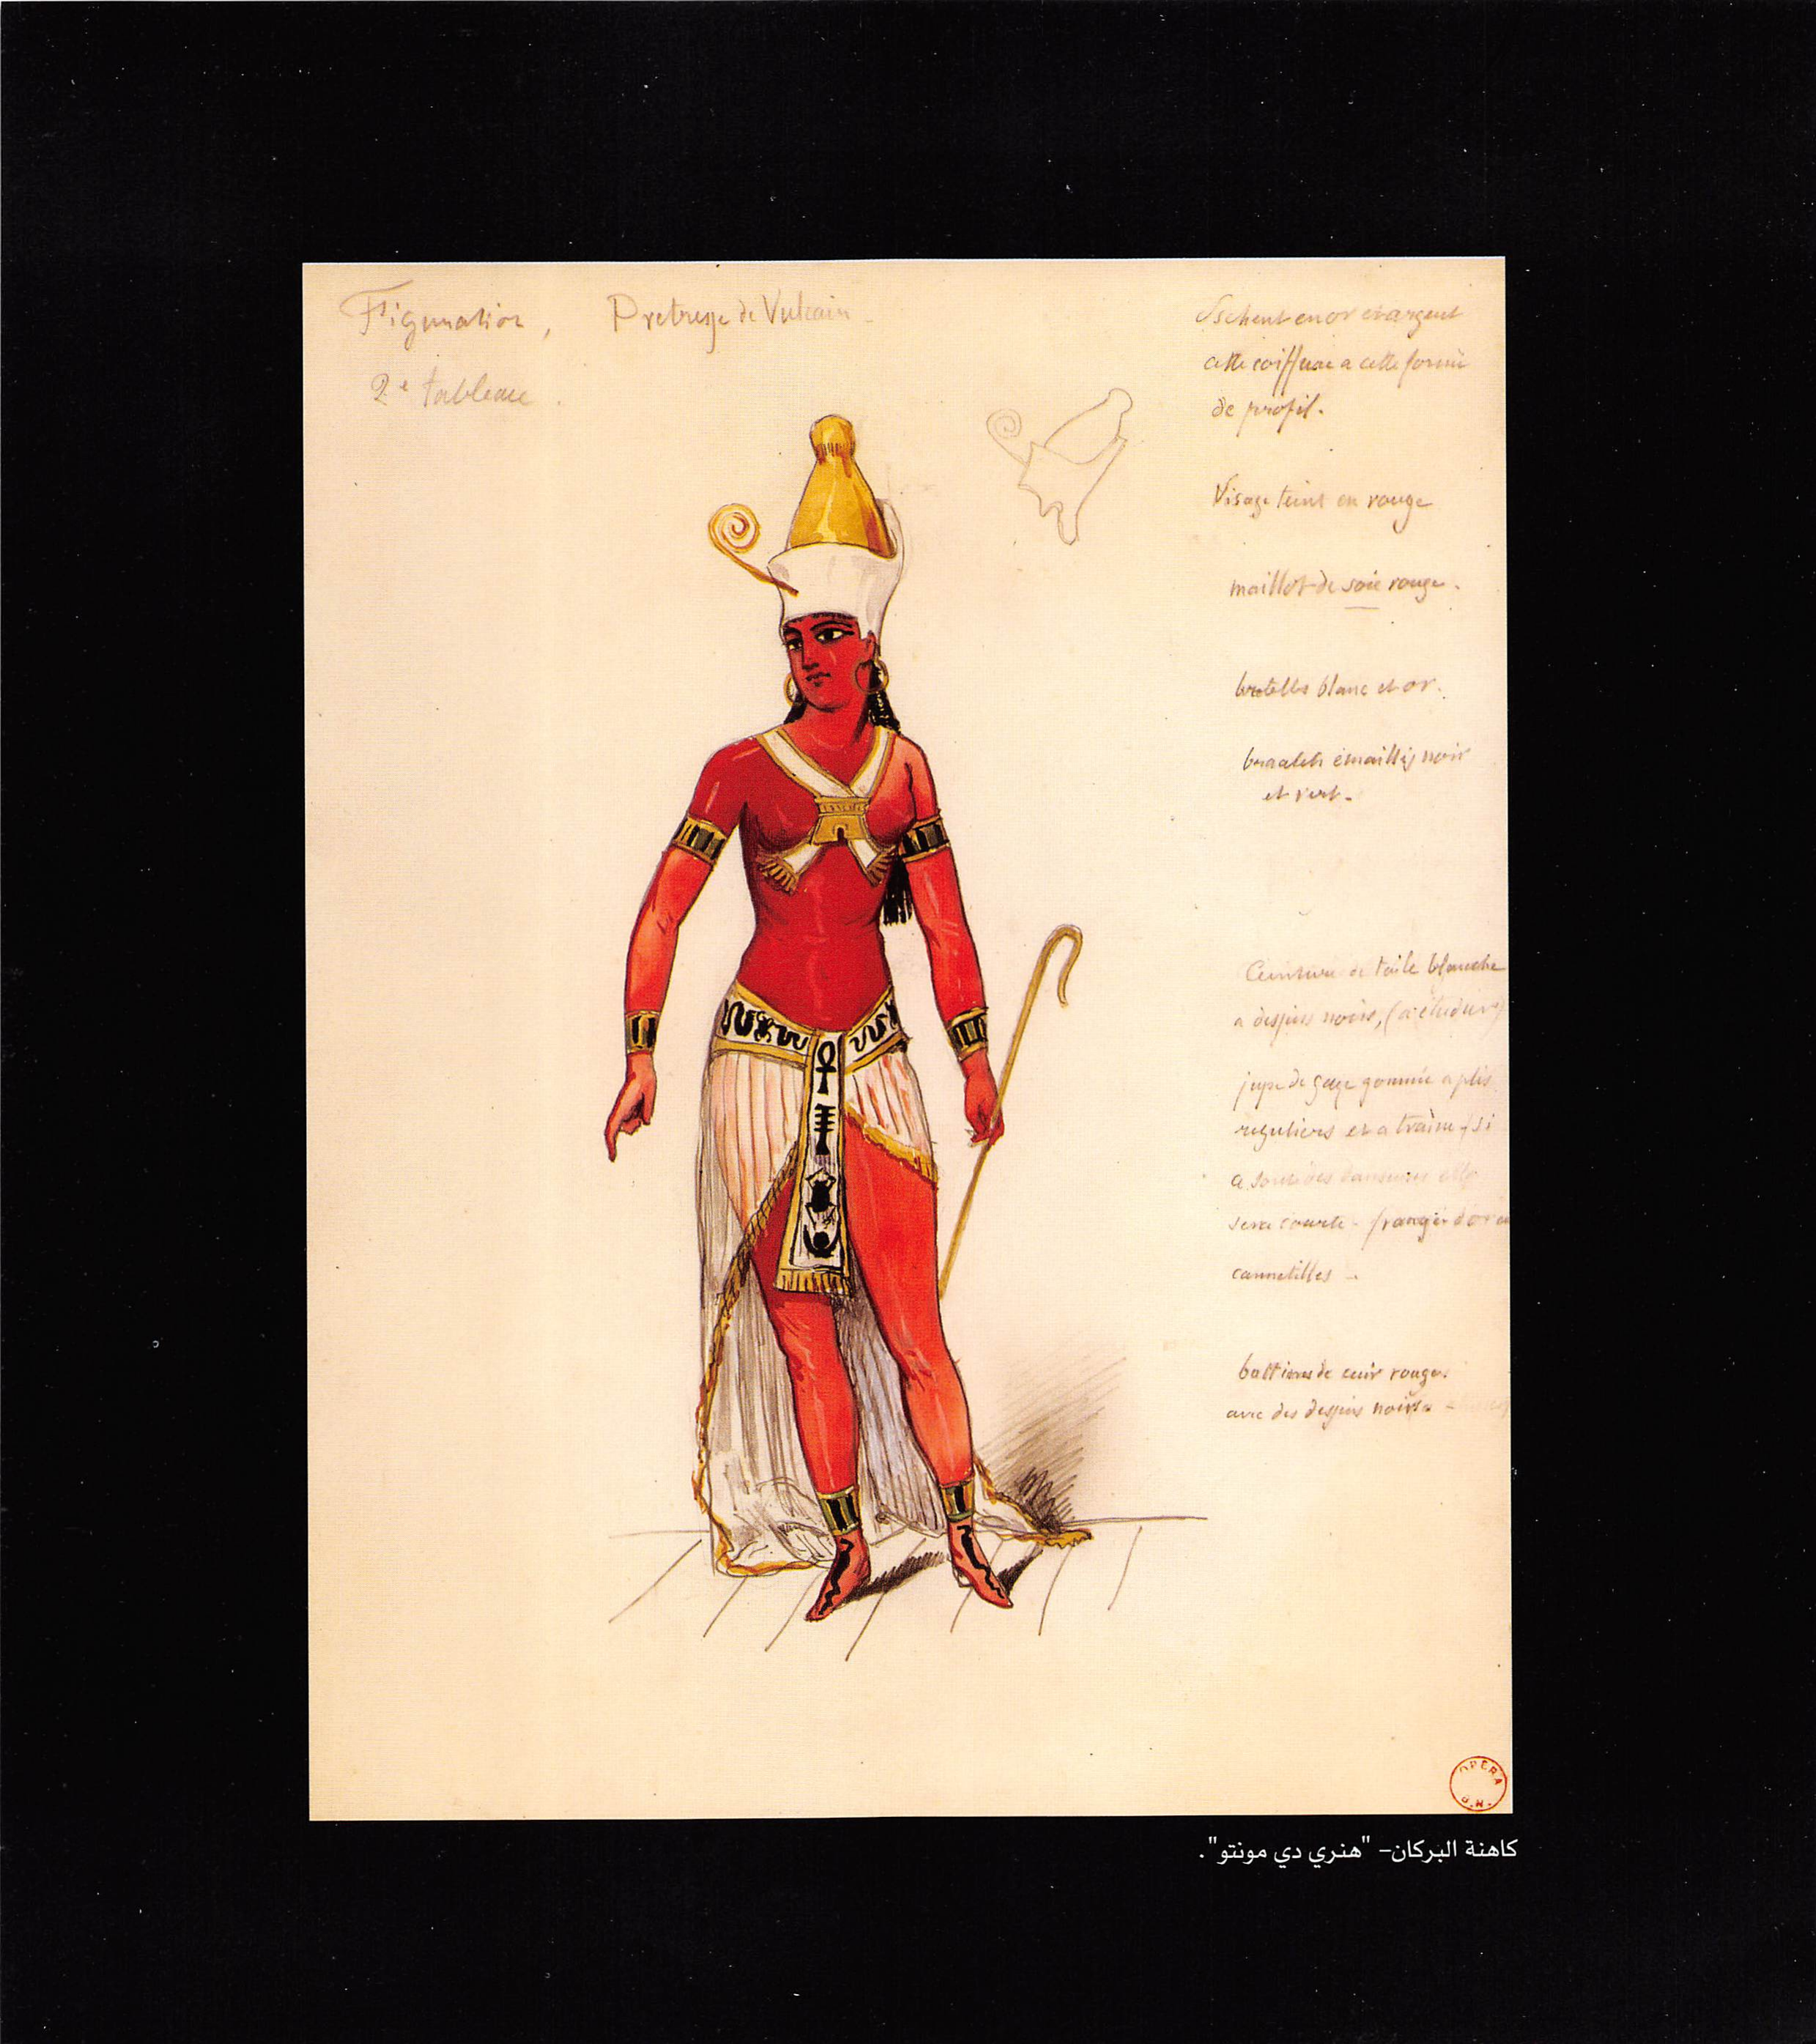 Figuration,
2e tableau.
Pretresse de Vulcain -
Pschent en or et argent
cette coiffure a cette forme
de profil.
Visage teint en rouge
maillot de soie rouge.
bretelles blanc et or.
bracelets émaillés noir
et vert.
Ceinture de toile blanche
a dessins noirs, (a étudier)
jupe de gaze gommée a plis
reguliers et a traine, (si
a danseuses elle
sera courte - franges d'or en
cannetilles -
bottines de cuir rouge.
avec des dessins noirs -
OPERA
B.N.
كاهنة البركان- "هنري دي مونتو".